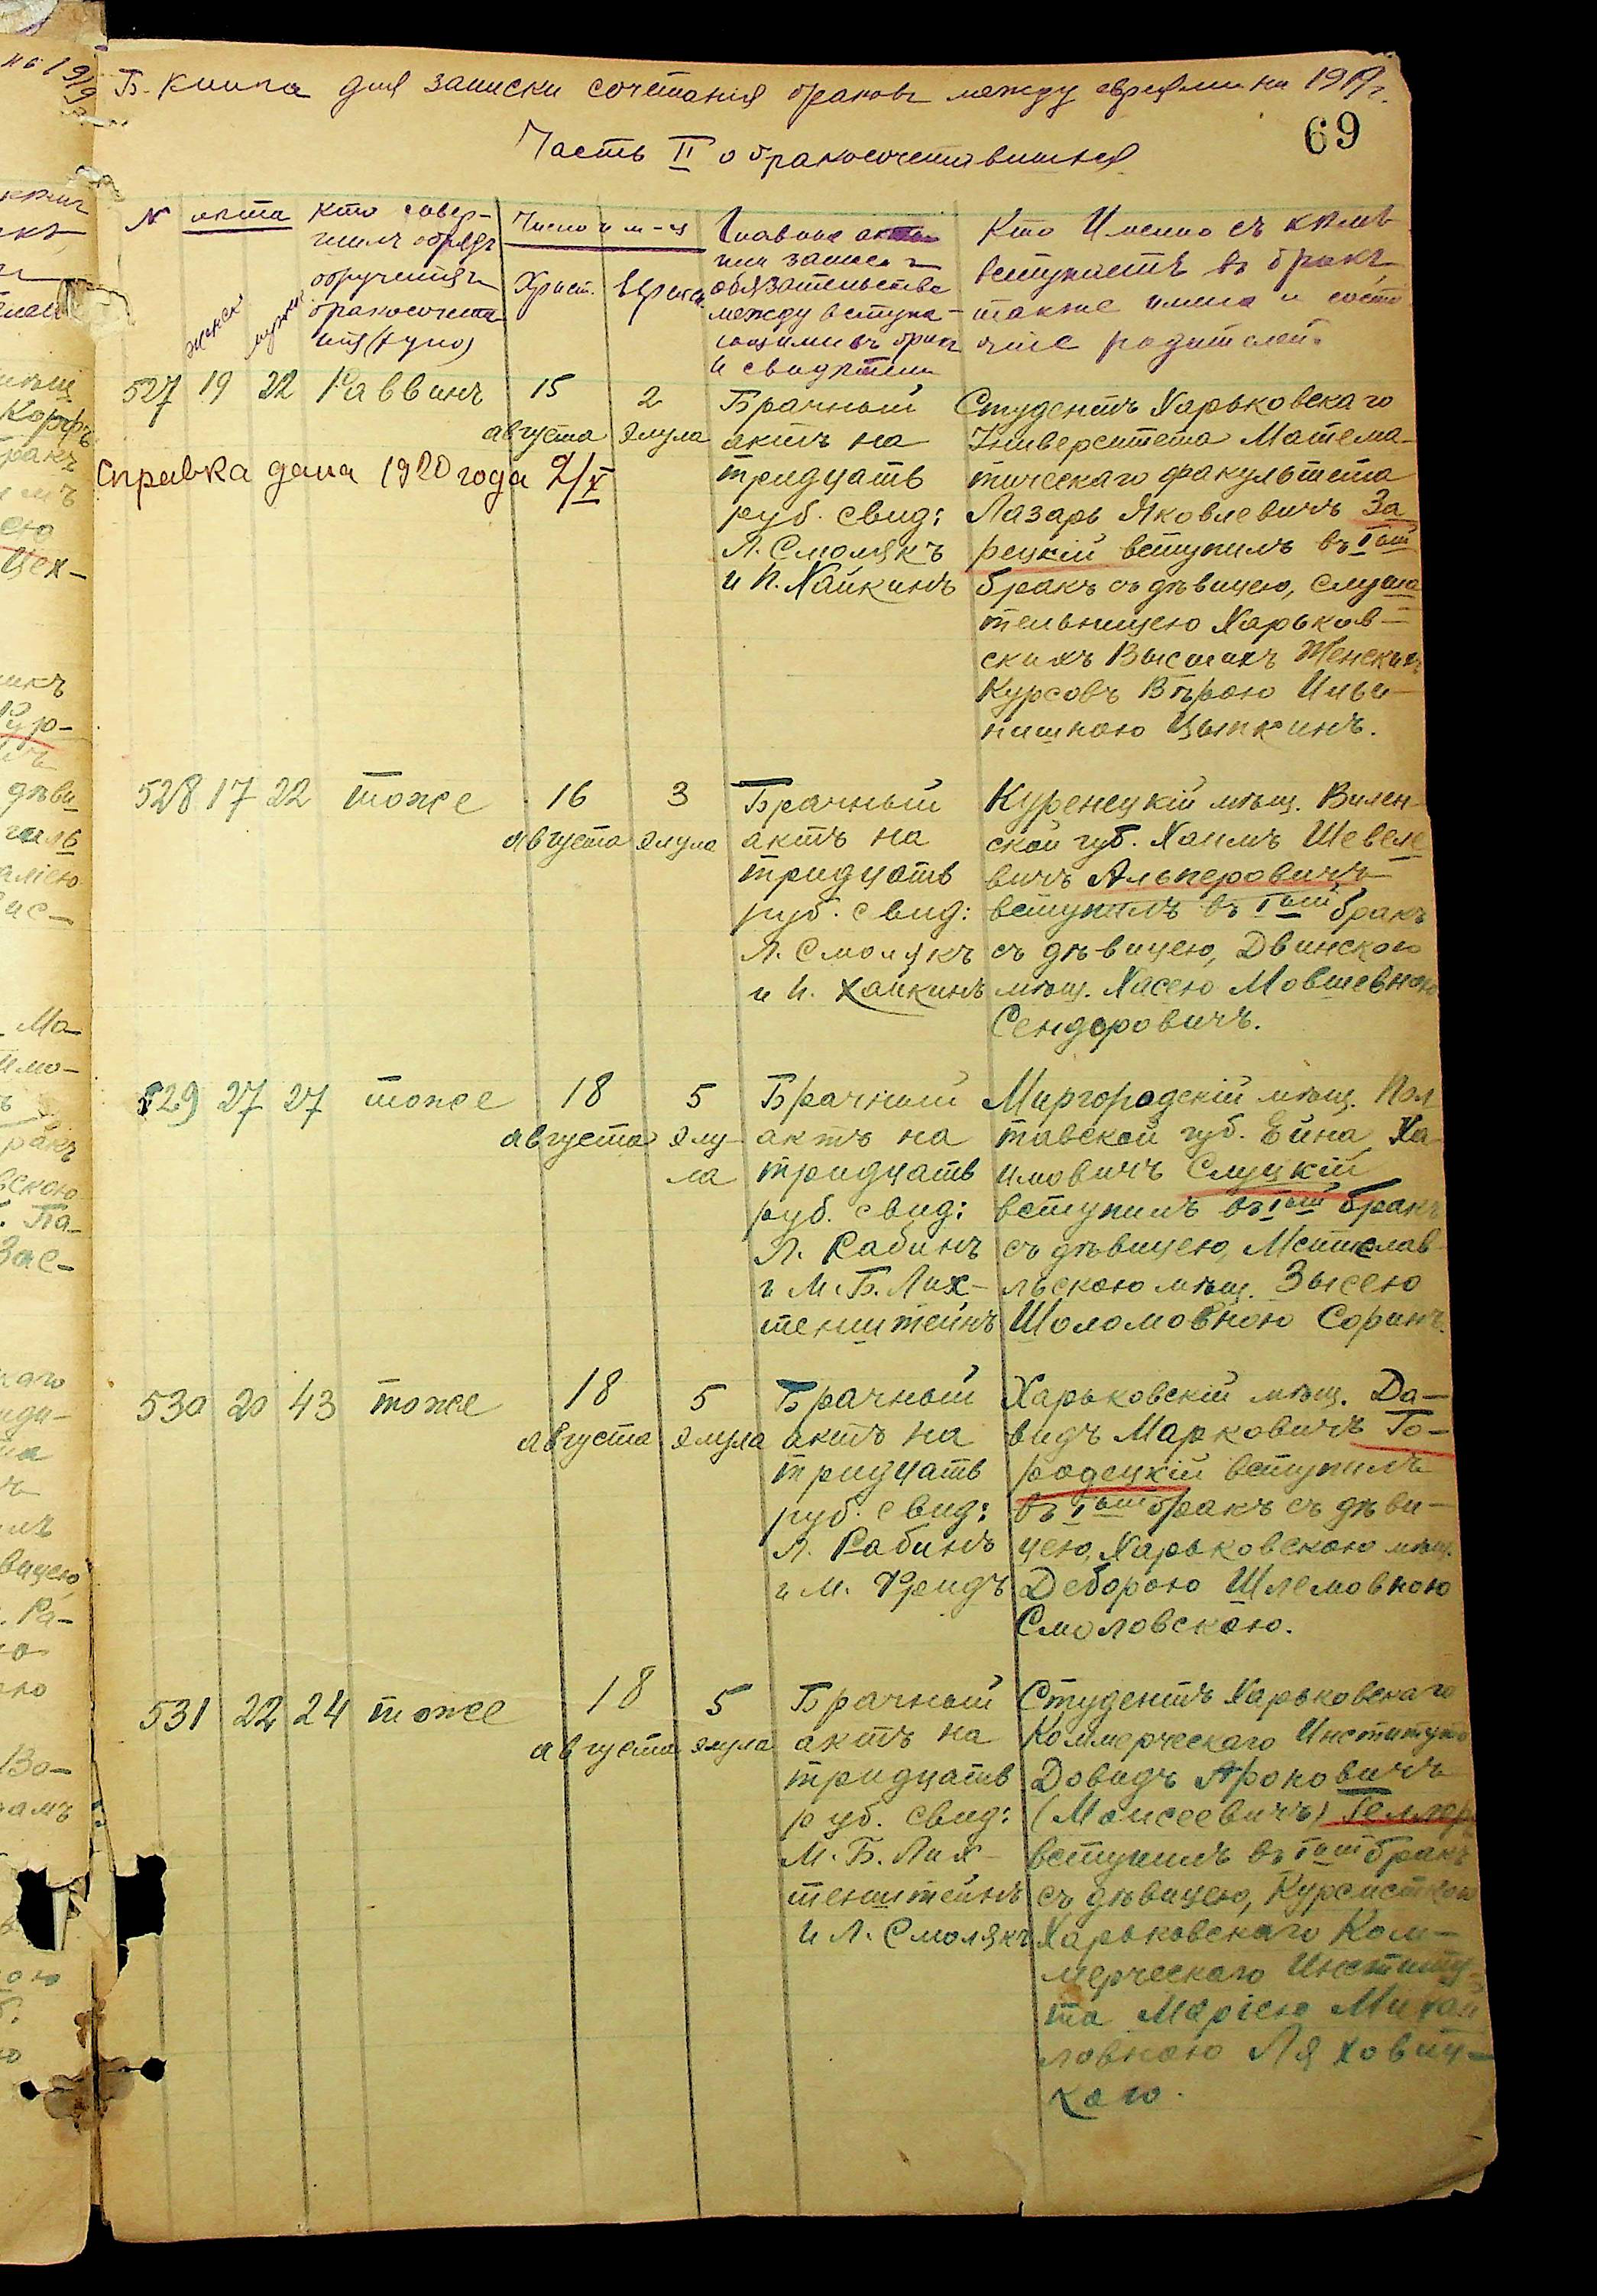 Б. Книга для записки сочетанія браковъ между евреями на 1919 г.
69
Часть II о бракосочетавшихся
N
лета
женск
мужск
Кто совер-
шилъ обрядъ
обрученія и
бракосочета
нія (хупо)
Число и м-ц
Христ.
Еврейск
Главные акты
или записи и
обязательства
между вступа-
ющими въ бракъ
и свидетели
Кто Именно съ кемъ
вступаетъ въ бракъ,
также имена и состо
яніе родителей.
527 19 22 Раввинъ
15
августа
2
Элула
Брачный
актъ на
тридцать
руб. свид:
Л. Смолякъ
и И. Хайкинъ
Студентъ Харьковскаго
Университета Матема-
тическаго факультета
Лазарь Яковлевичъ За
рецкій вступилъ въ Iый
бракъ съ дѣвицею, слуша
тельницею Харьков-
скихъ Высшихъ Женских
Курсовъ Вѣрою Ильи-
нишною Цыпкинъ.
Справка дана 1920 года 2/X
528 17 22 тоже
16
августа
3
элула
Брачный
актъ на
тридцать
руб. свид:
Л. Смолякъ
и И. Хайкинъ
Куренецкій мѣщ. Вилен-
ской губ. Хаимъ Шевеле
вичъ Альперовичъ
вступилъ въ Iый бракъ
съ дѣвицею, Двинскою
мѣщ. Хасею Мовшевною
Сендеровичъ.
529 27 27 тоже
18
августа
5
элу-
ла
Брачный
актъ на
тридцать
руб. свид:
Л. Рабинъ
и М. Б. Лих-
тенштейнъ
Миргородскій мѣщ. Пол
тавской губ. Ейна Ха
имовичъ Слуцкій
вступилъ въ Iый бракъ
съ дѣвицею, Мстислав
льскою мѣщ. Зысею
Шоломовною Соринъ.
530 20 43 тоже
18
августа
5
элула
Брачный
актъ на
тридцать
руб. свид:
Л. Рабинъ
и М. Фридъ
Харьковскій мѣщ. Да-
видъ Марковичъ Го-
родецкій вступилъ
въ Iый бракъ съ дѣви-
цею, Харьковскою мѣщ.
Деборою Шлемовною
Смоловскою.
531 22 24 тоже
18
августа
5
элула
Брачный
актъ на
тридцать
руб. свид:
М. Б. Лих-
тенштейнъ
и Л. Смолякъ
Студентъ Харьковскаго
Коммерческаго Института
Довидъ Ароновичъ
(Моисеевичъ) Геллеръ
вступилъ въ Iый бракъ
съ дѣвицею, Курсисткою
Харьковскаго Ком-
мерческаго Институ-
та Маріею Михай
ловною Ляховиц-
каго.